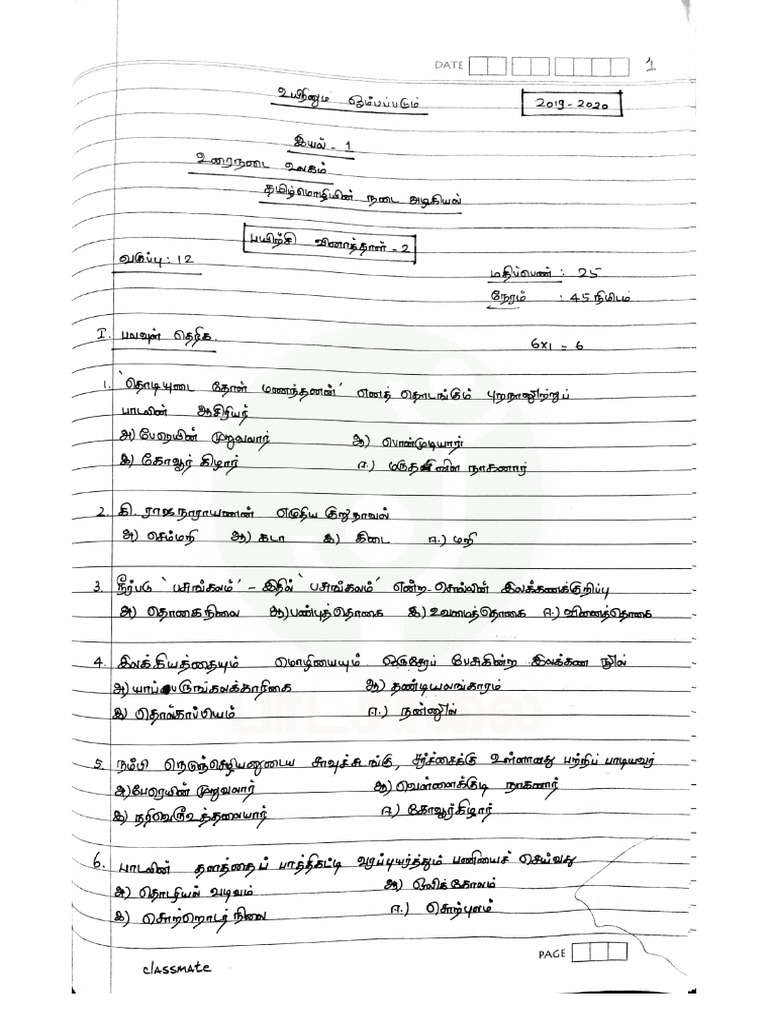 DATE 1
உயிரினும் ஓம்பப்படும்
2019-2020
இயல் - 1
உரைநடை உலகம்
தமிழ்மொழியின் நடை அழகியல்
பயிற்சி வினாத்தாள் - 2
வகுப்பு : 12
மதிப்பெண் : 25
நேரம் : 45 நிமிடம்
I. பலவுள் தெரிக. 6x1 = 6
1. 'தொடியுடைய தோள் மணந்தனன்' எனத் தொடங்கும் புறநானூற்றுப்
பாடலின் ஆசிரியர்
அ) பேரெயின் முறுவலார் ஆ) பொன்முடியார்
இ) கோவூர் கிழார் ஈ.) மருதனிள நாகனார்
2. கி. ராஜநாராயணன் எழுதிய குறுநாவல்
அ) செம்மறி ஆ) கடா இ) கிடை ஈ.) மறி
3. நீர்படு 'பசுங்கலம்' - இதில் 'பசுங்கலம்' என்ற சொல்லின் இலக்கணக்குறிப்பு
அ) தொகைநிலை ஆ) பண்புத்தொகை இ) உவமைத்தொகை ஈ.) வினைத்தொகை
4. இலக்கியத்தையும் மொழியையும் ஒருசேரப் பேசுகின்ற இலக்கண நூல்
அ) யாப்பெருங்கலக்காரிகை ஆ) தண்டியலங்காரம்
இ) தொல்காப்பியம் ஈ.) நன்னூல்
5. நம்பி நெடுஞ்செழியனுடைய சாவுச்சடங்கு, சர்ச்சைக்கு உள்ளானது பற்றிப் பாடியவர்
அ) பேரெயின் முறுவலார் ஆ) வெள்ளைக்குடி நாகனார்
இ) நரிவெரூஉத்தலையார் ஈ) கோவூர்கிழார்
6. பாடலின் தளத்தைப் பாத்திகட்டி வரப்புயர்த்தும் பணியைச் செய்வது
அ) தொழியல் வடிவம் ஆ) ஒலிக்கோலம்
இ) சொற்றொடர்நிலை ஈ.) சொற்புலம்
PAGE
classmate